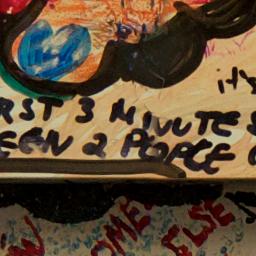 it's
RST 3 MINUTES
EEN 2 PEOPLE
OME ELSE